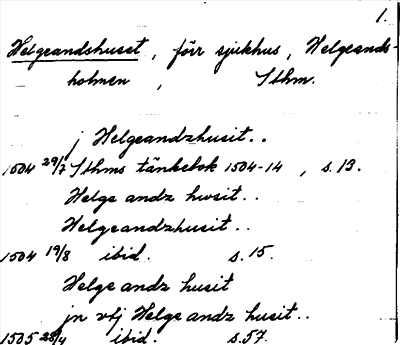 1.
Helgeandshuset, förr sjukhus, Helgeands-
holmen, Sthm.
j Helgeandzhusit..
1504 29/7 Sthms tänkebok 1504-14, s.13.
Helge andz hwsit..
Helgeandzhusit..
1504 19/8 ibid. s.15.
Helge andz husit
jn vtj Helge andz husit..
1505 28/4 ibid. s.57.